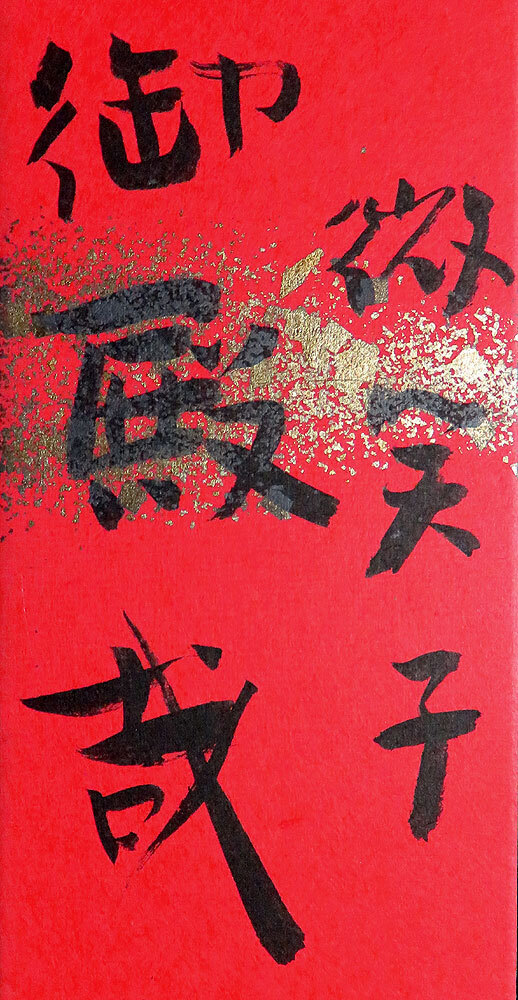 微笑子
御殿哉